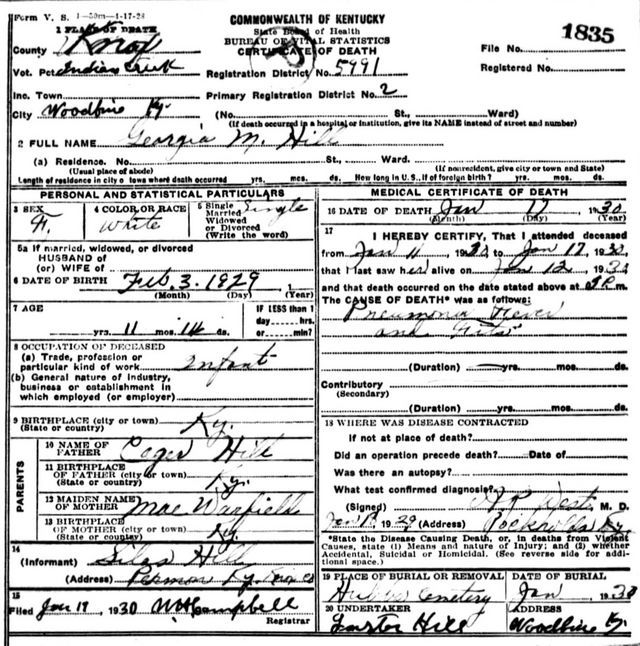 Form V. S. 1-50m-1-17-28
COMMONWEALTH OF KENTUCKY
State Board of Health
BUREAU OF VITAL STATISTICS
CERTIFICATE OF DEATH
1835
1 PLACE OF DEATH
County Knox
File No.
Vot. Pct Indian Creek
Registration District No. 5991
Registered No.
Inc. Town
Primary Registration District No. 2
City Woodbine Ky.
(No. St., Ward)
(If death occurred in a hospital or institution, give its NAME instead of street and number)
2 FULL NAME Georgia M. Hill
(a) Residence. No. St., Ward.
(Usual place of abode) (If nonresident, give city or town and State)
Length of residence in city or town where death occurred yrs. mos. ds. How long in U.S., if of foreign birth? yrs. mos. ds.
PERSONAL AND STATISTICAL PARTICULARS
3 SEX F.
4 COLOR OR RACE White
5 Single Married Widowed or Divorced (Write the word) Single
5a If married, widowed, or divorced
HUSBAND of
(or) WIFE of
6 DATE OF BIRTH Feb. 3. 1929
(Month) (Day) (Year)
7 AGE
yrs. 11 mos. 14 ds.
IF LESS than 1
day hrs.
or min?
8 OCCUPATION OF DECEASED
(a) Trade, profession or
particular kind of work Infant
(b) General nature of industry,
business or establishment in
which employed (or employer)
9 BIRTHPLACE (city or town) Ky.
(State or country)
PARENTS
10 NAME OF
FATHER Hill
11 BIRTHPLACE
OF FATHER (city or town) Ky.
(State or country)
12 MAIDEN NAME
OF MOTHER Mae Warfield
13 BIRTHPLACE
OF MOTHER (city or town) Ky.
(State or country)
14
(Informant) Silas Hill
(Address) Permon Ky.
15
Filed Jan 19, 1930 Campbell
MEDICAL CERTIFICATE OF DEATH
16 DATE OF DEATH Jan 17 1930
(Month) (Day)
17
I HEREBY CERTIFY, That I attended deceased
from Jan 11, 1930 to Jan 17, 1930,
that I last saw her alive on Jan 12, 1930
and that death occurred on the date stated above at P m.
The CAUSE OF DEATH* was as follows:
Pneumonia Fever
and
(Duration) yrs. mos. ds.
Contributory
(Secondary)
(Duration) yrs. mos. ds.
18 WHERE WAS DISEASE CONTRACTED
If not at place of death?
Did an operation precede death? Date of
Was there an autopsy?
What test confirmed diagnosis?
(Signed) West, M. D.
Jan 19 29 (Address) Rockholds Ky.
*State the Disease Causing Death, or, in deaths from Violent
Causes, state (1) Means and nature of Injury; and (2) whether
Accidental, Suicidal or Homicidal. (See reverse side for addi-
tional space.)
19 PLACE OF BURIAL OR REMOVAL
Cemetery
DATE OF BURIAL
Jan 1930
20 UNDERTAKER
Hill
ADDRESS
Woodbine Ky.